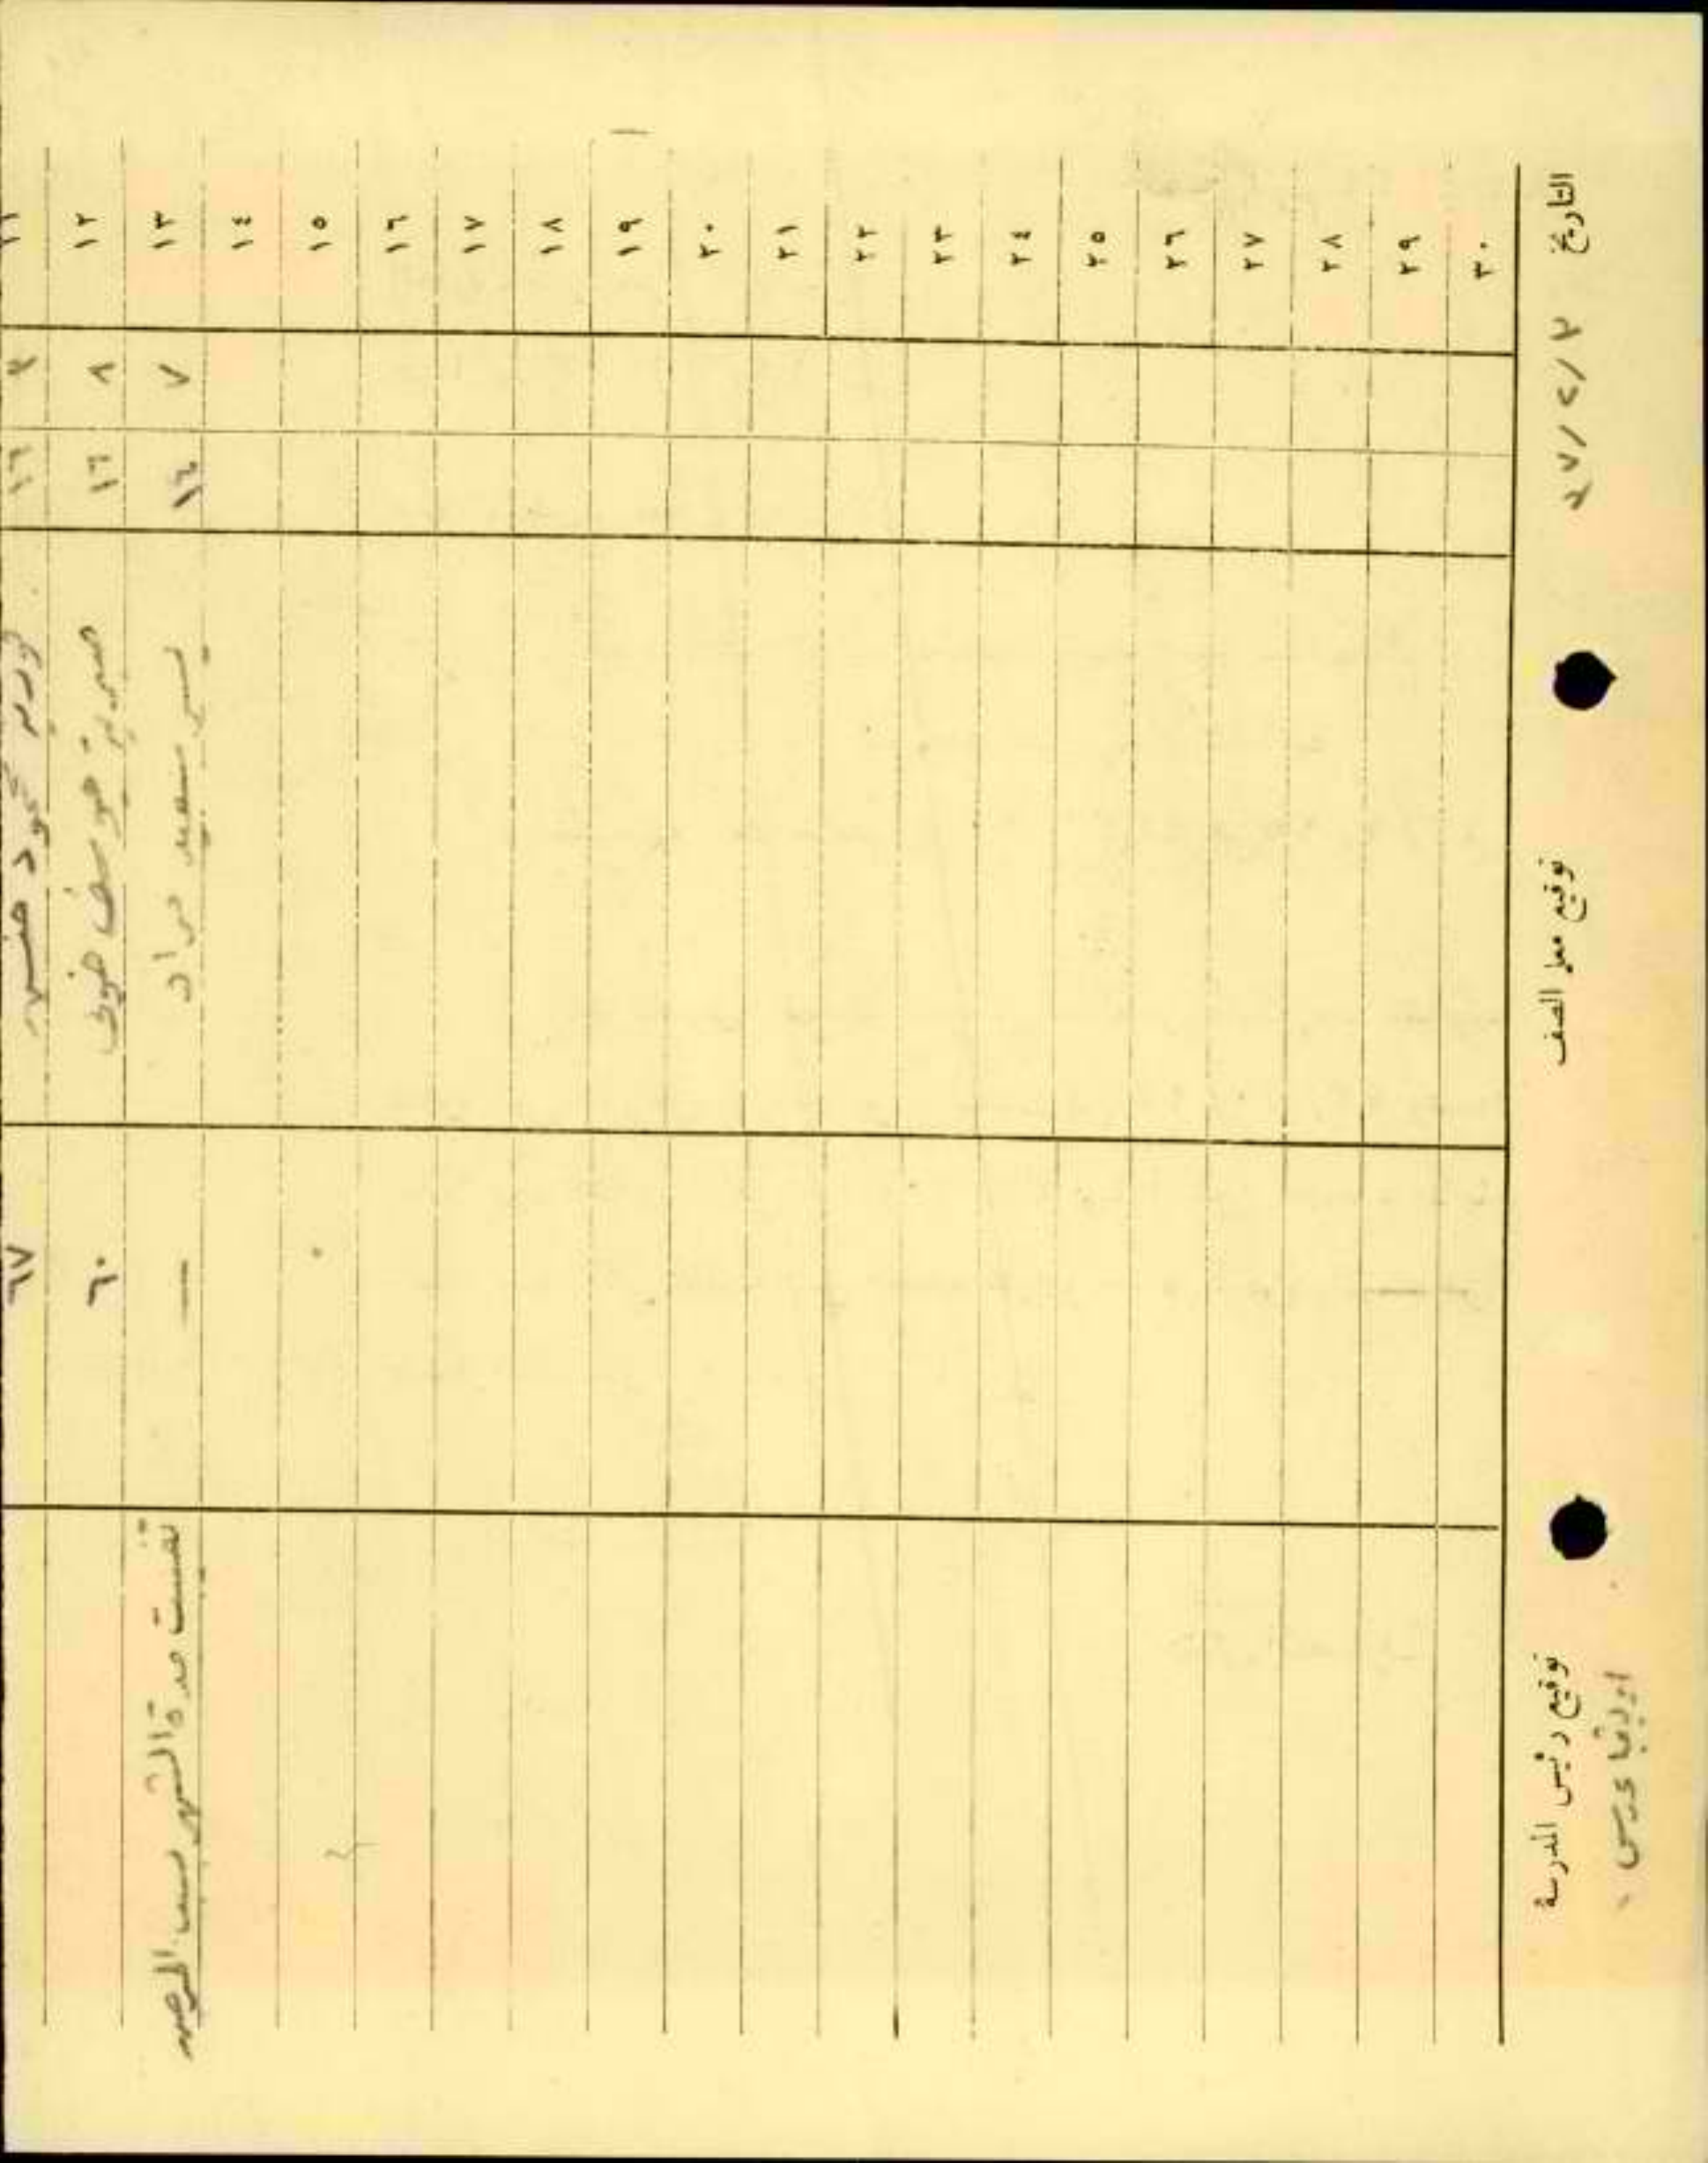 ١١ ٩ ١٦ محمود ٦٧
١٢ ٨ ١٦ صبرية خوري ٦٠
١٣ ٧ ١٦ سعيد مراد — تغيبت مدة الشهر بسبب المرض
١٤
١٥
١٦
١٧
١٨
١٩
٢٠
٢١
٢٢
٢٣
٢٤
٢٥
٢٦
٢٧
٢٨
٢٩
٣٠
التاريخ توقيع معلم الصف توقيع رئيس المدرسة